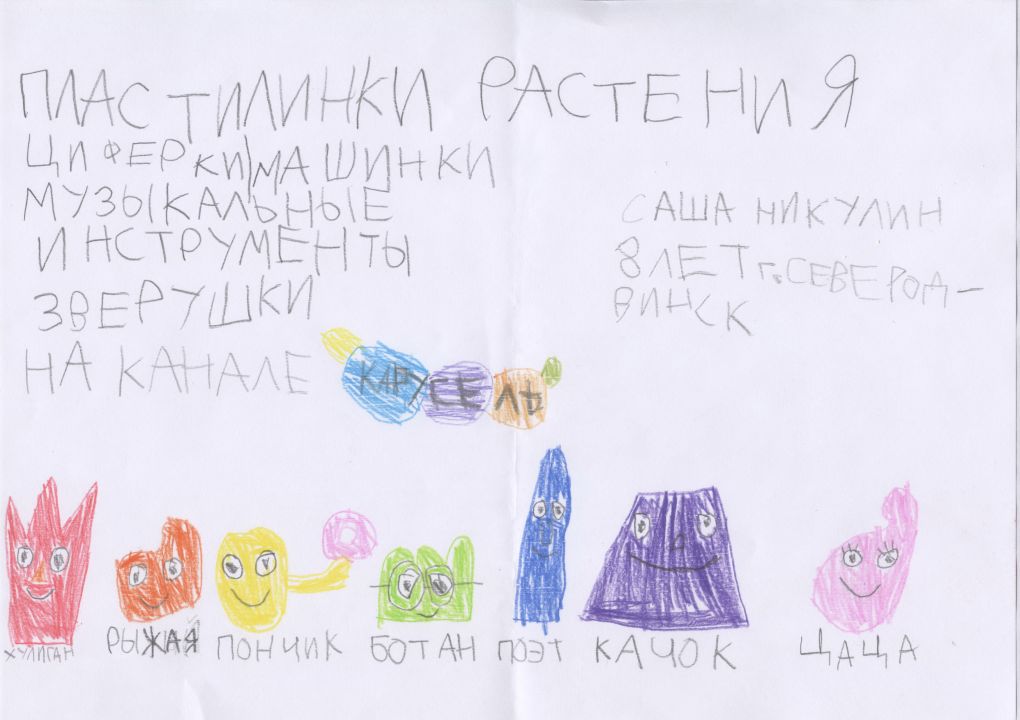 ПЛАСТИЛИНКИ РАСТЕНИЯ
ЦИФЕРКИ МАШИНКИ
МУЗЫКАЛЬНЫЕ
ИНСТРУМЕНТЫ
ЗВЕРУШКИ
НА КАНАЛЕ КАРУСЕЛЬ
САША НИКУЛИН
8 ЛЕТ г. СЕВЕРОД-
ВИНСК
ХУЛИГАН РЫЖАЯ ПОНЧИК БОТАН ПОЭТ КАЧОК ЦАЦА